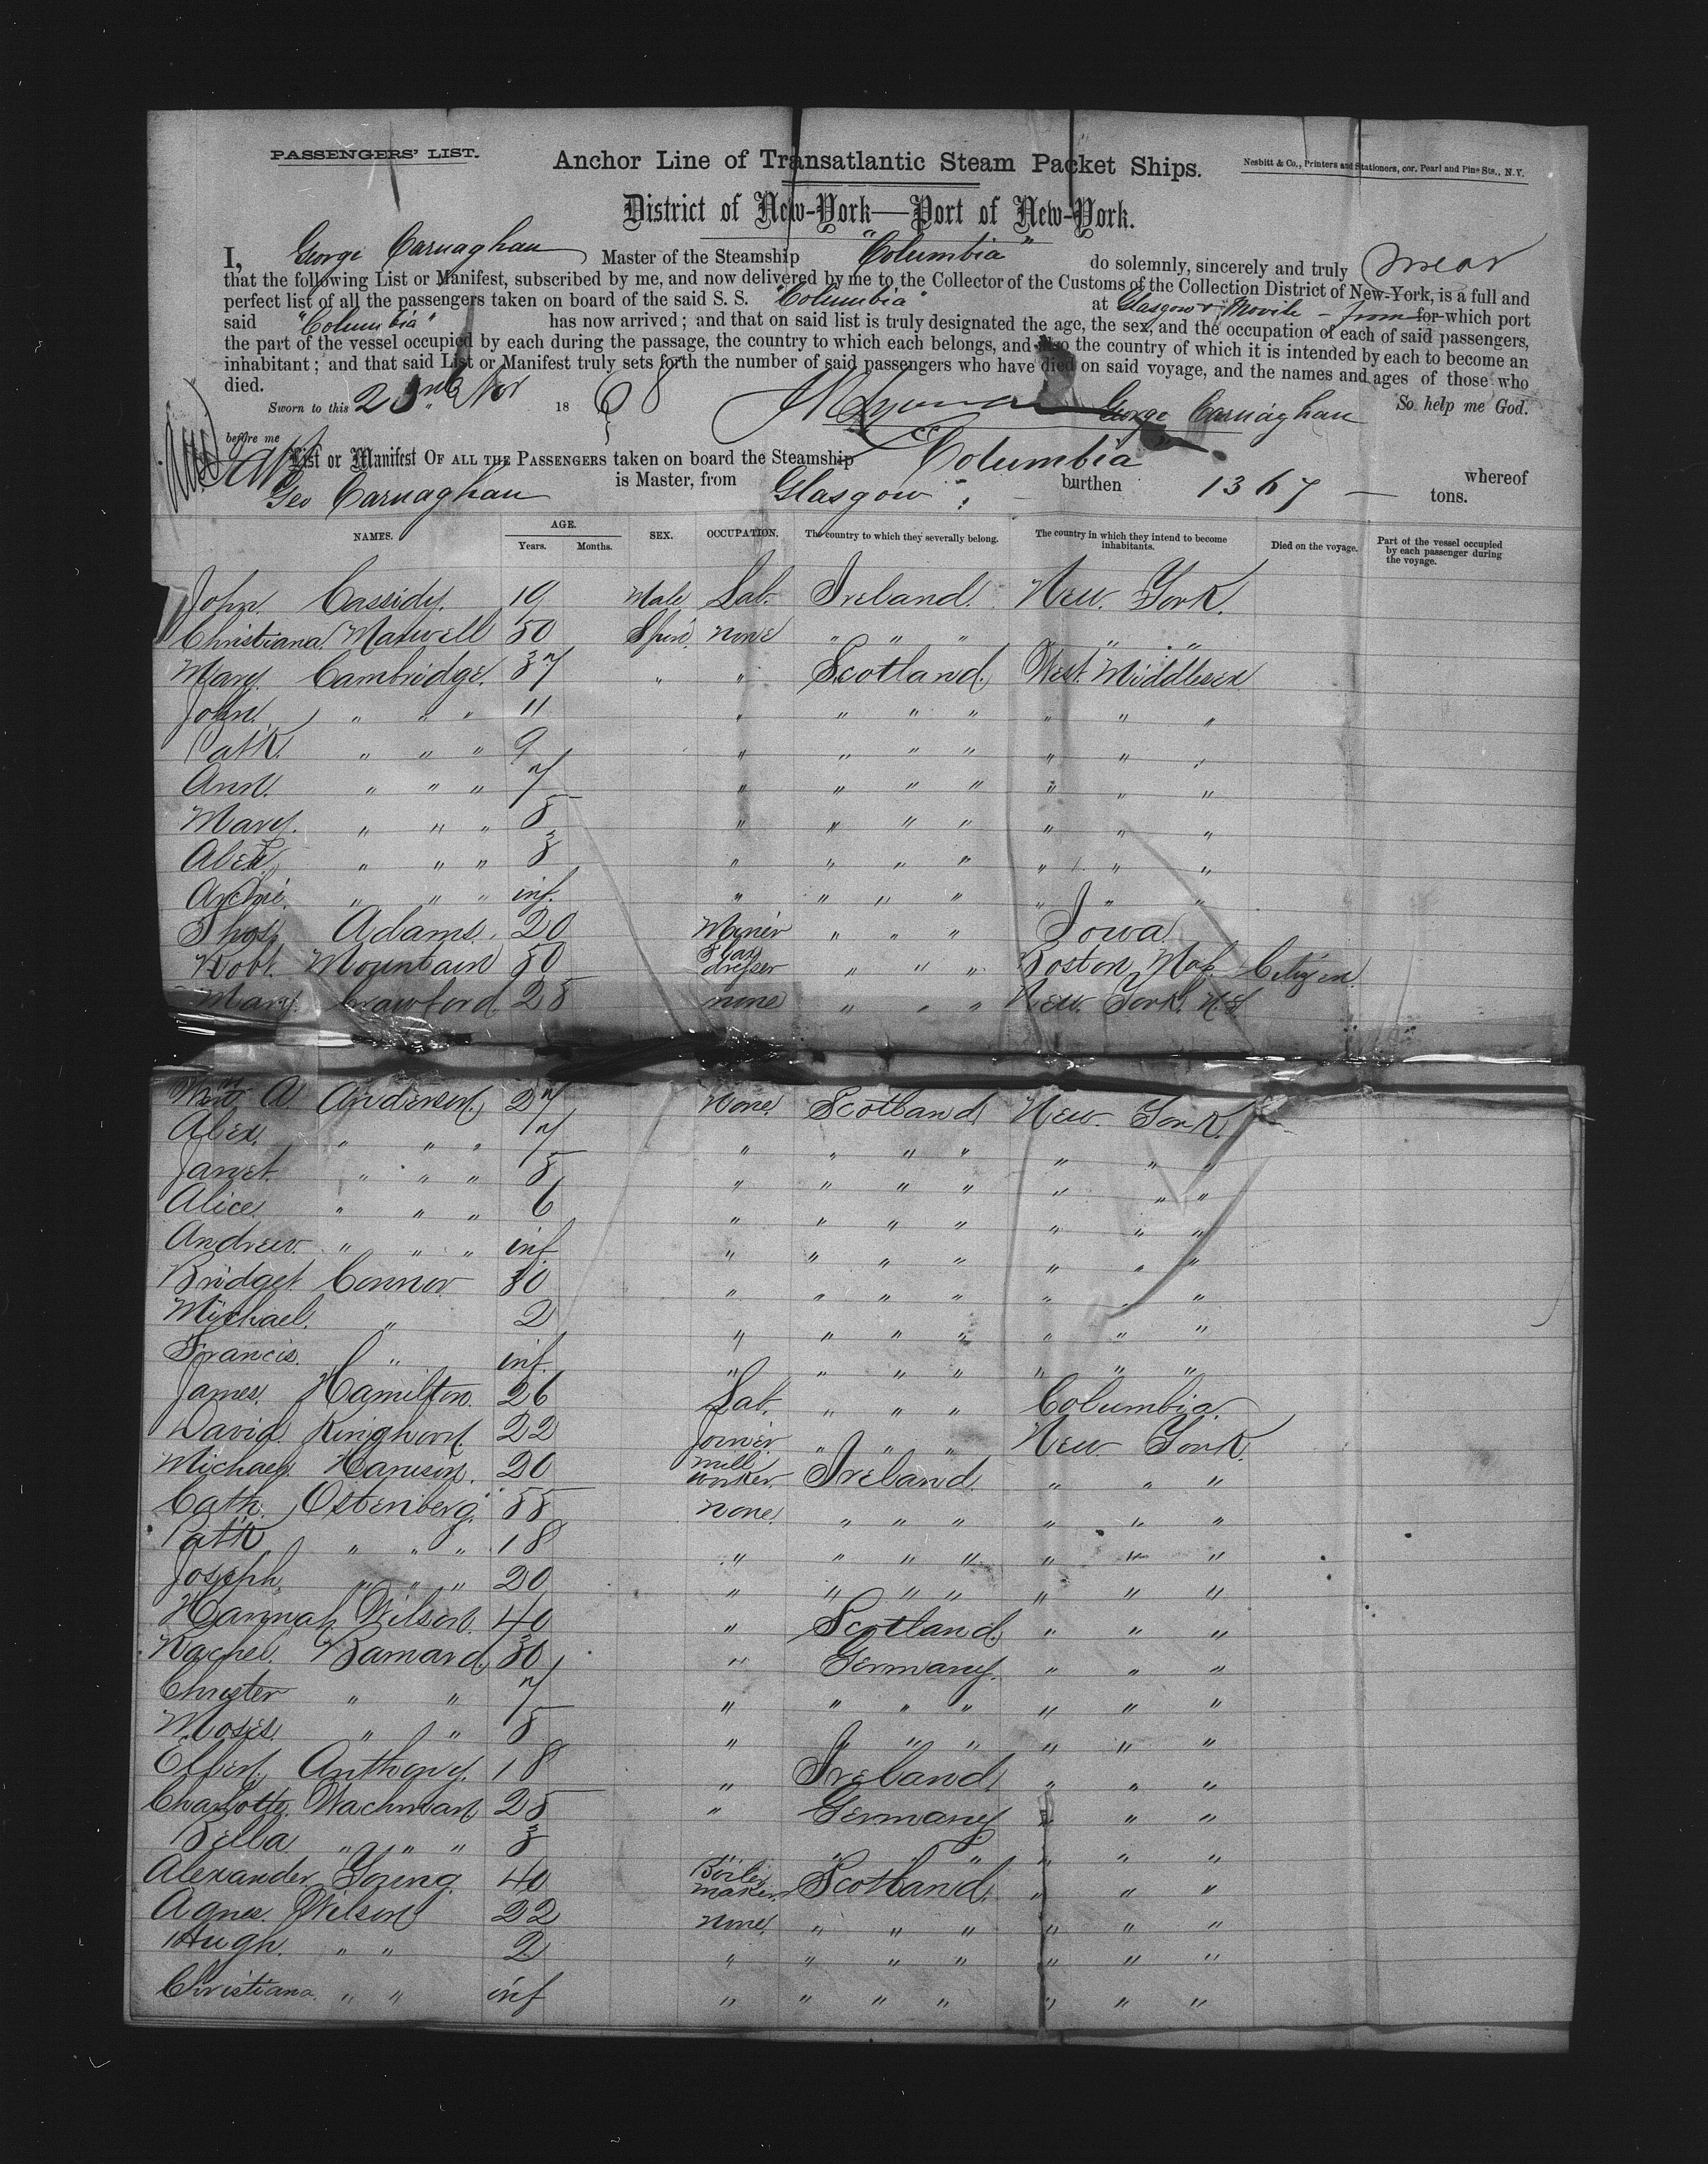 PASSENGERS' LIST.
Anchor Line of Transatlantic Steam Packet Ships.
Nesbitt & Co., Printers and Stationers, cor. Pearl and Pine Sts., N.Y.
District of New-York—Port of New-York.
I, George Carnaghan Master of the Steamship "Columbia" do solemnly, sincerely and truly swear
that the following List or Manifest, subscribed by me, and now delivered by me to the Collector of the Customs of the Collection District of New-York, is a full and
perfect list of all the passengers taken on board of the said S. S. "Columbia" at Glasgow & Moville - from for which port
said "Columbia" has now arrived; and that on said list is truly designated the age, the sex, and the occupation of each of said passengers,
the part of the vessel occupied by each during the passage, the country to which each belongs, and also the country of which it is intended by each to become an
inhabitant; and that said List or Manifest truly sets forth the number of said passengers who have died on said voyage, and the names and ages of those who
died.
Sworn to this 23rd Nov 1868 George Carnaghan So help me God.
before me
List or Manifest OF ALL THE PASSENGERS taken on board the Steamship Columbia whereof
Geo Carnaghan is Master, from Glasgow burthen 1367 tons.
NAMES. AGE. Years. Months. SEX. OCCUPATION. The country to which they severally belong. The country in which they intend to become inhabitants. Died on the voyage. Part of the vessel occupied by each passenger during the voyage.
John Cassidy. 19 Male Lab. Ireland. New York.
Christiana Maxwell 50 Spin. none " " " " "
Mary Cambridge. 37 " " Scotland. West Middlesex
John " " " 11 " " " " " " "
Patk. " " " 9 " " " " " " "
Ann. " " " 7 " " " " " " "
Mary. " " " 5 " " " " " " "
Alex. " " " 3 " " " " " " "
Archi. " " " inf. " " " " " " "
Thos. Adams. 20 Miner " " " Iowa
Robt. Mountain 50 Flax dresser " " " Boston, Mas. Citizen.
Mary. Crawford. 25 none " " " New York. N.Y
A. Anderson. 27 None. Scotland New York.
Alex. " " " 17 " " " " " " "
Janet. " " " 5 " " " " " " "
Alice. " " " 6 " " " " " " "
Andrew. " " " inf " " " " " " "
Bridget Connor 30 " " " " " " "
Michael. " 2 " " " " " " "
Francis. " inf. " " " " " " "
James. Hamilton. 26 Lab. " " " Columbia.
David. Kinghorn. 22 Joiner. " " " New York.
Michael. 20 mill worker. Ireland. " " "
Cath. Ostenberg. 55 None. " " " " " "
Patk " " " 18 " " " " " " "
Joseph. " " " 20 " " " " " " "
Hannah Wilson. 40 " Scotland. " " "
Rachel. Barnard. 30 " Germany. " " "
Christer " " 7 " " " " " " "
Moses. " " 5 " " " " " " "
Ellen. Anthony. 18 " Ireland. " " "
Charlotte. Wachman 25 " Germany " " "
Bella " " " " 3 " " " " " "
Alexander Young. 40 Boiler maker. Scotland. " " "
Agnes. Wilson 22 None. " " " " " "
Hugh. " " 2 " " " " " " "
Christiana. " " inf " " " " " " "